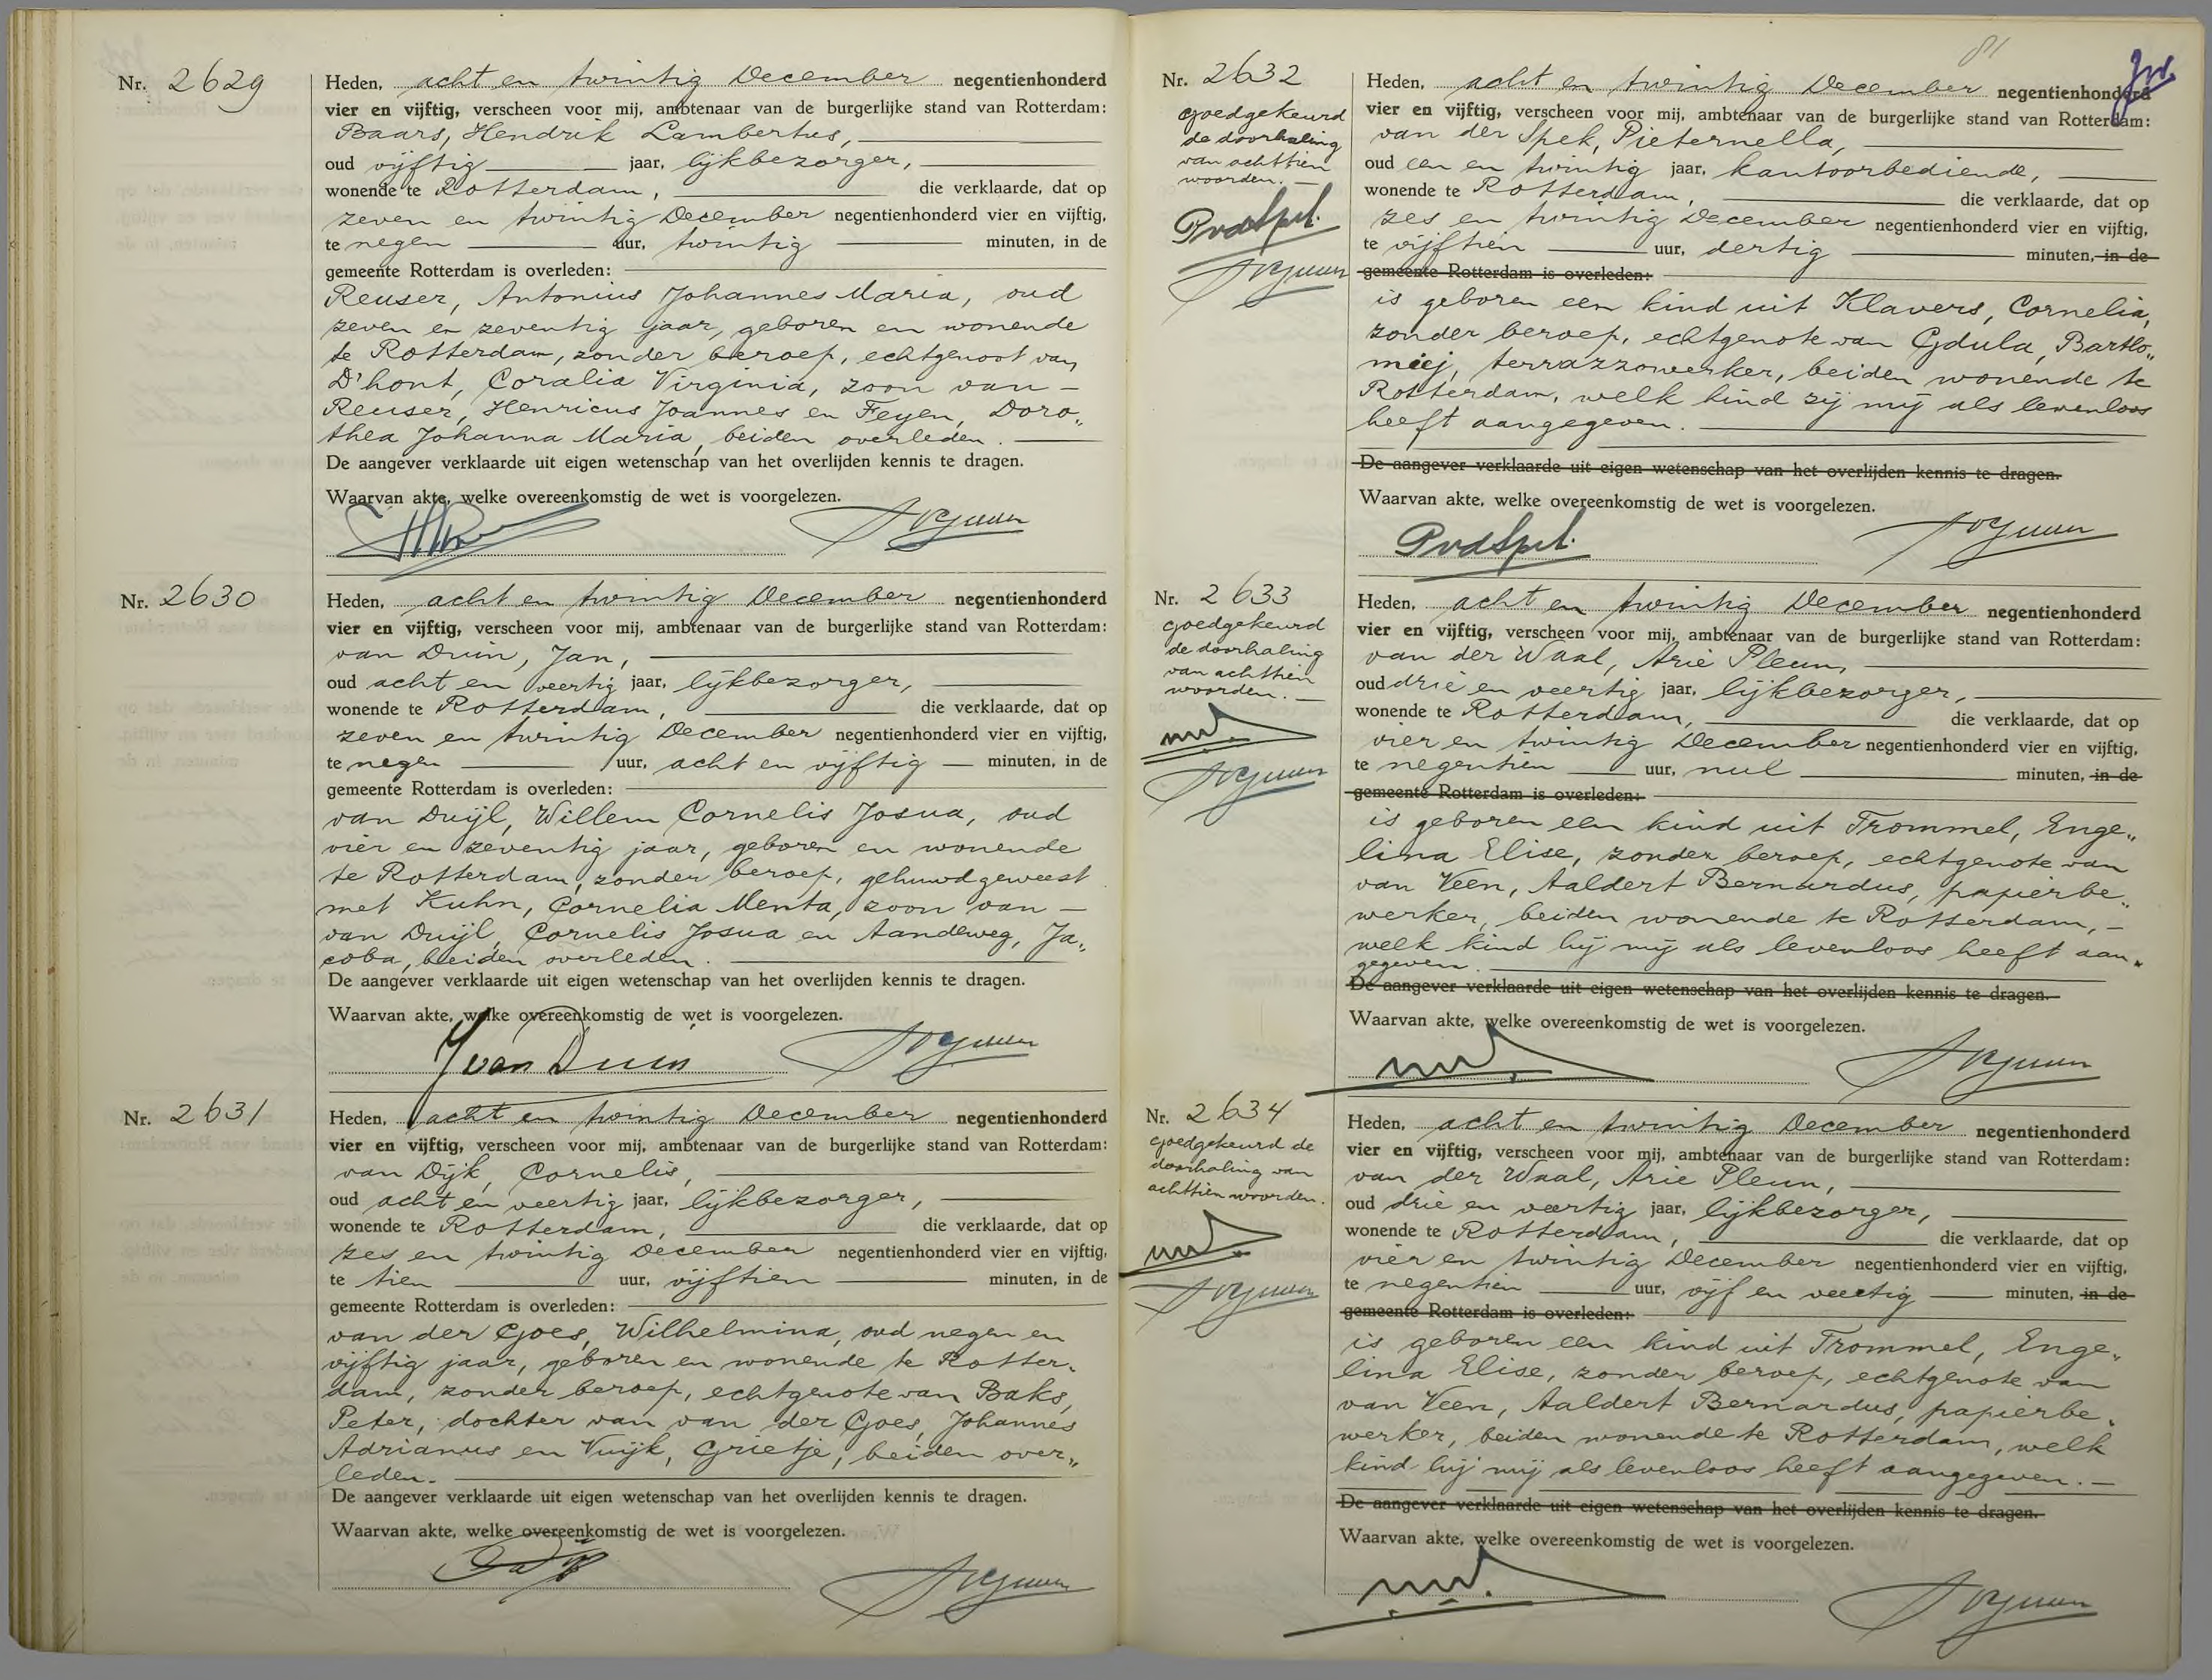 Nr. 2629
Heden, acht en twintig December negentienhonderd
vier en vijftig, verscheen voor mij, ambtenaar van de burgerlijke stand van Rotterdam:
Baars, Hendrik Lambertus,
oud vijftig jaar, lijkbezorger,
wonende te Rotterdam, die verklaarde, dat op
zeven en twintig December negentienhonderd vier en vijftig,
te negen uur, twintig minuten, in de
gemeente Rotterdam is overleden:
Reuser, Antonius Johannes Maria, oud
zeven en zeventig jaar, geboren en wonende
te Rotterdam, zonder beroep, echtgenoot van
D'hont, Coralia Virginia, zoon van -
Reuser, Henricus Joannes en Feyen, Doro„
thea Johanna Maria, beiden overleden.
De aangever verklaarde uit eigen wetenschap van het overlijden kennis te dragen.
Waarvan akte, welke overeenkomstig de wet is voorgelezen.
Nr. 2630
Heden, acht en twintig December negentienhonderd
vier en vijftig, verscheen voor mij, ambtenaar van de burgerlijke stand van Rotterdam:
van Duin, Jan,
oud acht en veertig jaar, lijkbezorger,
wonende te Rotterdam, die verklaarde, dat op
zeven en twintig December negentienhonderd vier en vijftig,
te negen uur, acht en vijftig — minuten, in de
gemeente Rotterdam is overleden:
van Duijl, Willem Cornelis Josua, oud
vier en zeventig jaar, geboren en wonende
te Rotterdam, zonder beroep, gehuwd geweest
met Kuhn, Cornelia Menta, zoon van -
van Duijl, Cornelis Josua en Aandeweg, Ja„
coba, beiden overleden.
De aangever verklaarde uit eigen wetenschap van het overlijden kennis te dragen.
Waarvan akte, welke overeenkomstig de wet is voorgelezen.
J van Duin
Nr. 2631
Heden, acht en twintig December negentienhonderd
vier en vijftig, verscheen voor mij, ambtenaar van de burgerlijke stand van Rotterdam:
van Dijk, Cornelis,
oud acht en veertig jaar, lijkbezorger,
wonende te Rotterdam, die verklaarde, dat op
zes en twintig December negentienhonderd vier en vijftig,
te tien uur, vijftien minuten, in de
gemeente Rotterdam is overleden:
van der Goes, Wilhelmina, oud negen en
vijftig jaar, geboren en wonende te Rotter„
dam, zonder beroep, echtgenote van Baks,
Peter, dochter van van der Goes, Johannes
Adrianus en Vuijk, Grietje, beiden over„
leden.
De aangever verklaarde uit eigen wetenschap van het overlijden kennis te dragen.
Waarvan akte, welke overeenkomstig de wet is voorgelezen.
81
Nr. 2632
goedgekeurd
de doorhaling
van achttien
woorden. -
PvdSpek
Heden, acht en twintig December negentienhonderd
vier en vijftig, verscheen voor mij, ambtenaar van de burgerlijke stand van Rotterdam:
van der Spek, Pieternella,
oud een en twintig jaar, kantoorbediende,
wonende te Rotterdam, die verklaarde, dat op
zes en twintig December negentienhonderd vier en vijftig,
te vijftien uur, dertig minuten, in de
gemeente Rotterdam is overleden:
is geboren een kind uit Klavers, Cornelia,
zonder beroep, echtgenote van Gdula, Bartlo„
miej, terrazzowerker, beiden wonende te
Rotterdam, welk kind zij mij als levenloos
heeft aangegeven.
De aangever verklaarde uit eigen wetenschap van het overlijden kennis te dragen.
Waarvan akte, welke overeenkomstig de wet is voorgelezen.
PvdSpek
Nr. 2633
goedgekeurd
de doorhaling
van achttien
woorden. -
Heden, acht en twintig December negentienhonderd
vier en vijftig, verscheen voor mij, ambtenaar van de burgerlijke stand van Rotterdam:
van der Waal, Arie Pleun,
oud drie en veertig jaar, lijkbezorger,
wonende te Rotterdam, die verklaarde, dat op
vier en twintig December negentienhonderd vier en vijftig,
te negentien uur, nul minuten, in de
gemeente Rotterdam is overleden:
is geboren een kind uit Trommel, Enge„
lina Elise, zonder beroep, echtgenote van
van Veen, Aaldert Bernardus, papierbe„
werker, beiden wonende te Rotterdam, -
welk kind hij mij als levenloos heeft aan„
gegeven.
De aangever verklaarde uit eigen wetenschap van het overlijden kennis te dragen.
Waarvan akte, welke overeenkomstig de wet is voorgelezen.
Nr. 2634
goedgekeurd de
doorhaling van
achttien woorden.
Heden, acht en twintig December negentienhonderd
vier en vijftig, verscheen voor mij, ambtenaar van de burgerlijke stand van Rotterdam:
van der Waal, Arie Pleun,
oud drie en veertig jaar, lijkbezorger,
wonende te Rotterdam, die verklaarde, dat op
vier en twintig December negentienhonderd vier en vijftig,
te negentien uur, vijf en veertig — minuten, in de
gemeente Rotterdam is overleden:
is geboren een kind uit Trommel, Enge„
lina Elise, zonder beroep, echtgenote van
van Veen, Aaldert Bernardus, papierbe„
werker, beiden wonende te Rotterdam, welk
kind hij mij als levenloos heeft aangegeven. -
De aangever verklaarde uit eigen wetenschap van het overlijden kennis te dragen.
Waarvan akte, welke overeenkomstig de wet is voorgelezen.